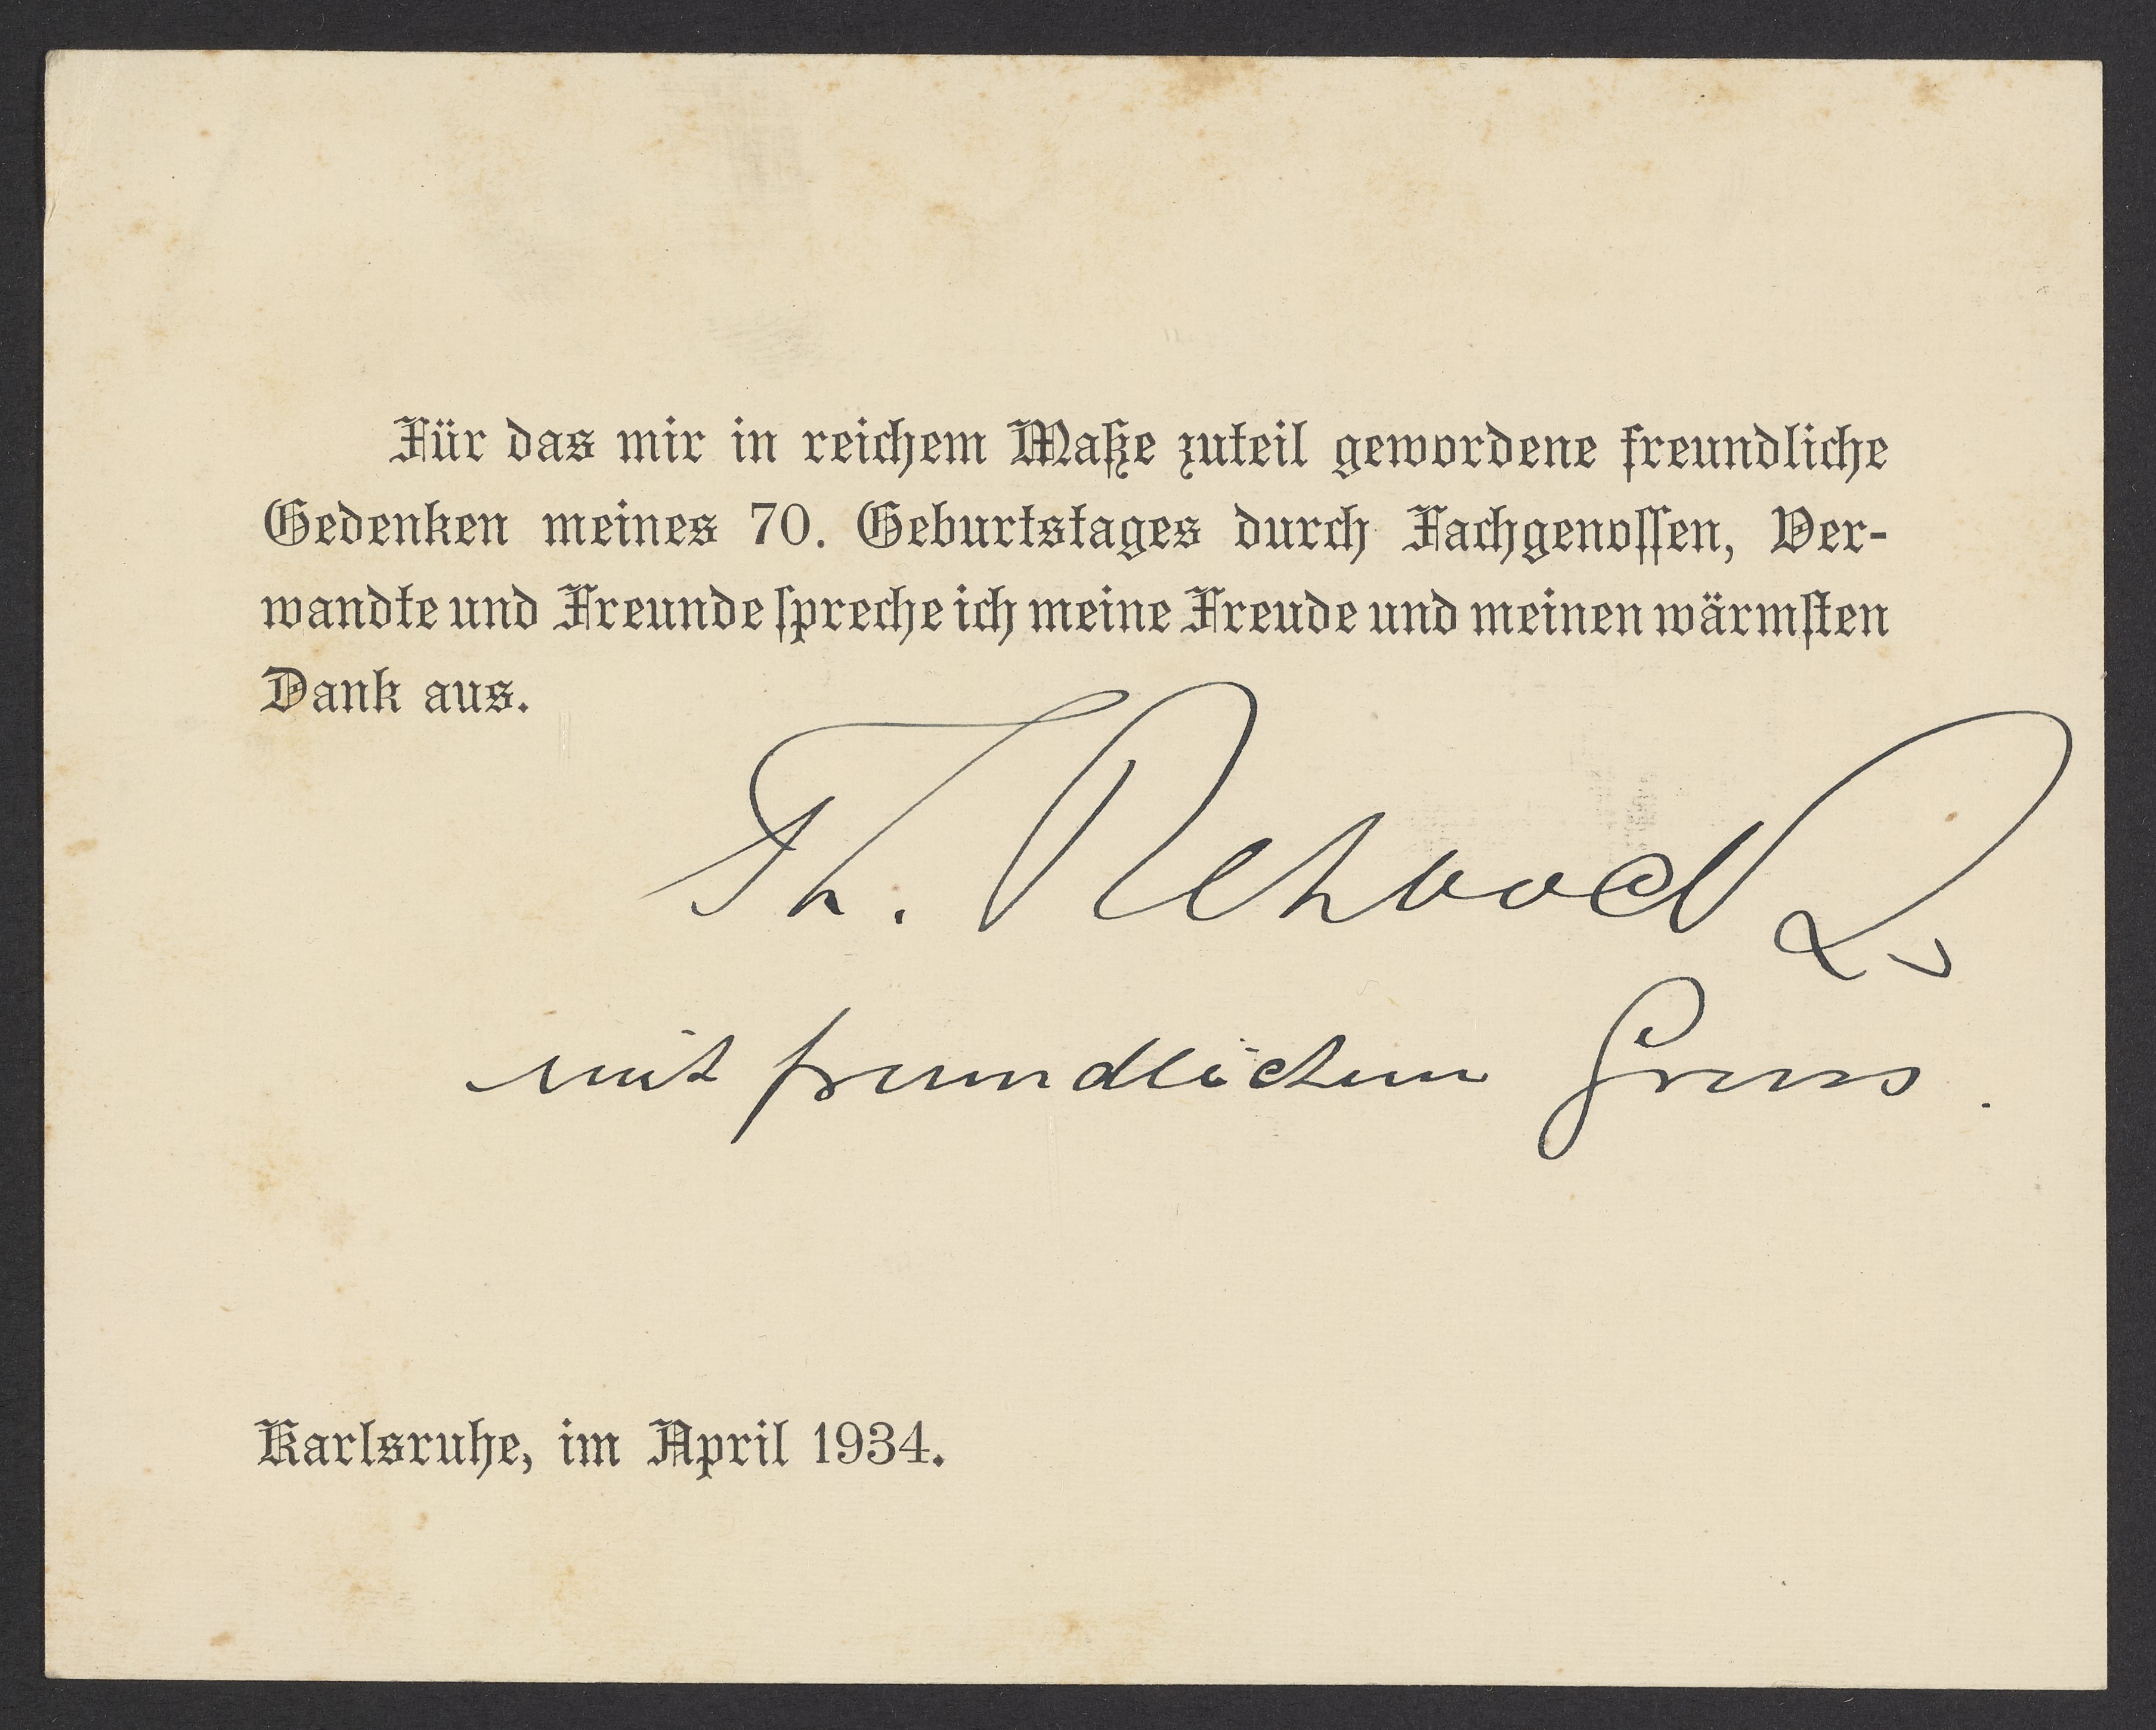 Für das mir in reichem Maße zuteil gewordene freundliche
Gedenken meines 70. Geburtstages durch Fachgenossen, Ver-
wandte und Freunde spreche ich meine Freude und meinen wärmsten
Dank aus.
Th. Rehbock
mit freundlichem Gruss.
Karlsruhe, im April 1934.